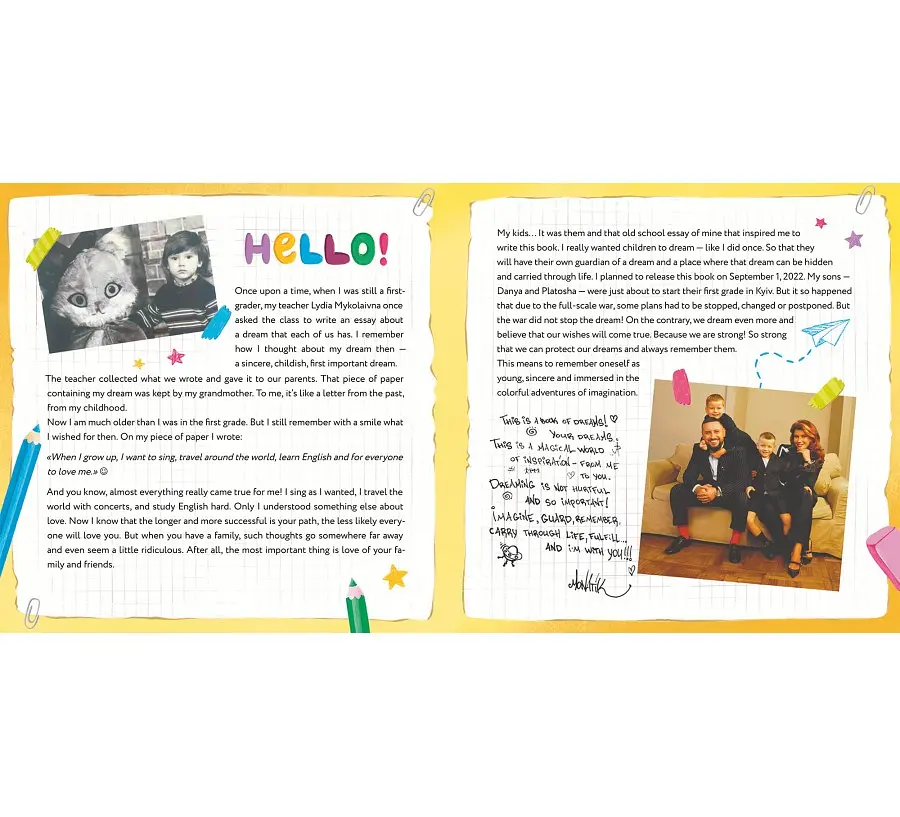 HeLLO!
Once upon a time, when I was still a first-
grader, my teacher Lydia Mykolaivna once
asked the class to write an essay about
a dream that each of us has. I remember
how I thought about my dream then —
a sincere, childish, first important dream.
The teacher collected what we wrote and gave it to our parents. That piece of paper
containing my dream was kept by my grandmother. To me, it's like a letter from the past,
from my childhood.
Now I am much older than I was in the first grade. But I still remember with a smile what
I wished for then. On my piece of paper I wrote:
«When I grow up, I want to sing, travel around the world, learn English and for everyone
to love me.» ☺
And you know, almost everything really came true for me! I sing as I wanted, I travel the
world with concerts, and study English hard. Only I understood something else about
love. Now I know that the longer and more successful is your path, the less likely every-
one will love you. But when you have a family, such thoughts go somewhere far away
and even seem a little ridiculous. After all, the most important thing is love of your fa-
mily and friends.
My kids... It was them and that old school essay of mine that inspired me to
write this book. I really wanted children to dream — like I did once. So that they
will have their own guardian of a dream and a place where that dream can be hidden
and carried through life. I planned to release this book on September 1, 2022. My sons —
Danya and Platosha — were just about to start their first grade in Kyiv. But it so happened
that due to the full-scale war, some plans had to be stopped, changed or postponed. But
the war did not stop the dream! On the contrary, we dream even more and
believe that our wishes will come true. Because we are strong! So strong
that we can protect our dreams and always remember them.
This means to remember oneself as
young, sincere and immersed in the
colorful adventures of imagination.
THIS IS A BOOK OF DREAMS! ♡
YOUR DREAMS.
THIS IS A MAGICAL WORLD
OF INSPIRATION - FROM ME
♡ TO YOU.
DREAMING IS NOT HURTFUL
AND SO IMPORTANT!
IMAGINE, GUARD, REMEMBER,
CARRY THROUGH LIFE, FULFILL...
AND I'M WITH YOU!!!
MONATIK